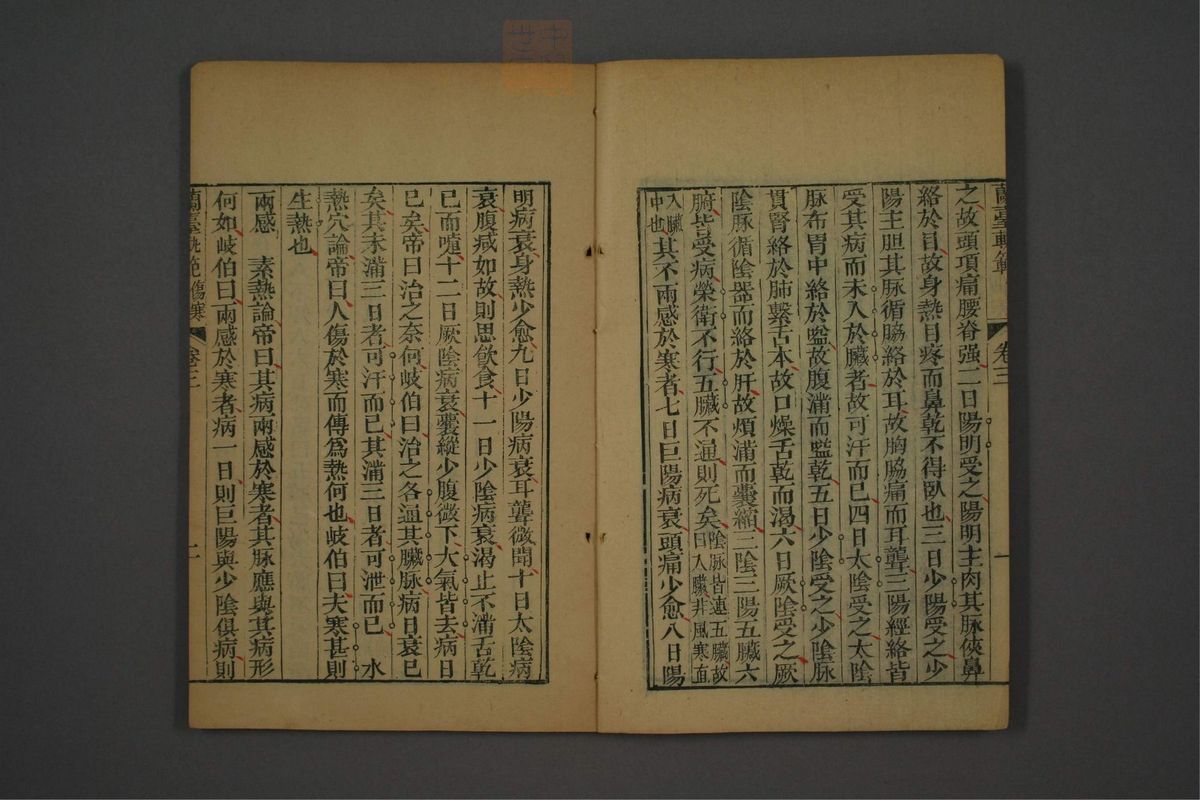 蘭臺軌範
卷三
一
之故頭項痛腰脊强二日陽明受之陽明主肉其脉俠鼻
絡於目故身熱目疼而鼻乾不得臥也三日少陽受之少
陽主胆其脉循脇絡於耳故胸脇痛而耳聾三陽經絡皆
受其病而未入於臟者故可汗而已四日太陰受之太陰
脉布胃中絡於嗌故腹滿而嗌乾五日少陰受之少陰脉
貫腎絡於肺繫舌本故口燥舌乾而渴六日厥陰受之厥
陰脉循陰器而絡於肝故煩滿而囊縮三陰三陽五臟六
腑皆受病榮衛不行五臟不通則死矣陰脉皆連五臟故曰入臟非風寒直
入臟中也其不兩感於寒者七日巨陽病衰頭痛少愈八日陽
明病衰身熱少愈九日少陽病衰耳聾微聞十日太陰病
衰腹減如故則思飲食十一日少陰病衰渴止不滿舌乾
已而嚏十二日厥陰病衰囊縱少腹微下大氣皆去病日
已矣帝曰治之奈何岐伯曰治之各通其臟脉病日衰已
矣其未滿三日者可汗而已其滿三日者可泄而已 水
熱穴論帝曰人傷於寒而傳爲熱何也岐伯曰夫寒甚則
生熱也
兩感 素熱論帝曰其病兩感於寒者其脉應與其病形
何如岐伯曰兩感於寒者病一日則巨陽與少陰俱病則
蘭臺軌範傷寒
卷三